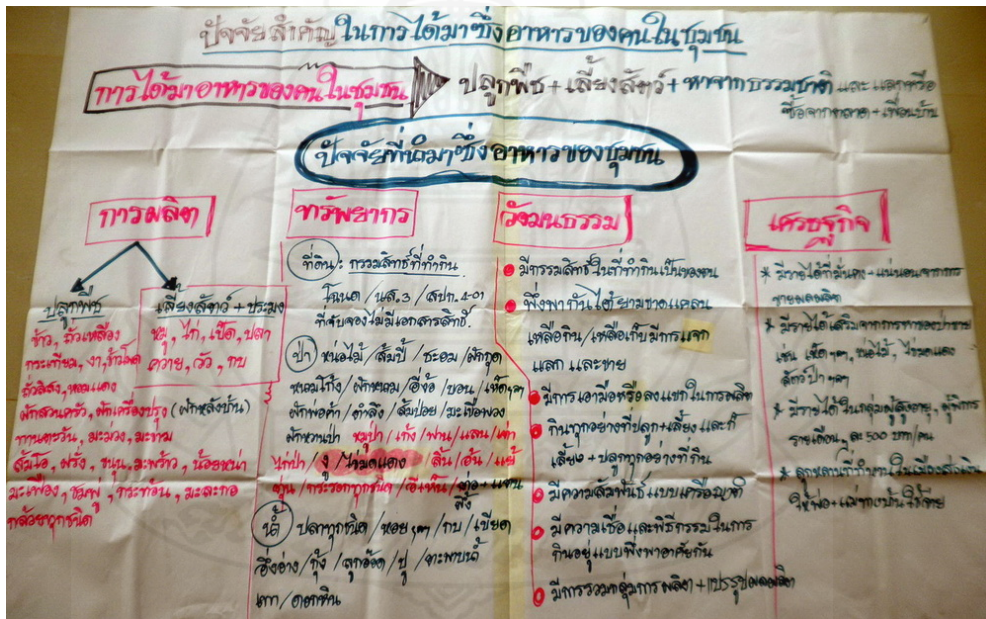 ปัจจัยสำคัญในการได้มาซึ่งอาหารของคนในชุมชน
การได้มาอาหารของคนในชุมชน
ปลูกพืช + เลี้ยงสัตว์ + หาจากธรรมชาติ และ แลกหรือ
ซื้อจากตลาด + เพื่อนบ้าน
ปัจจัยที่นำมาซึ่งอาหารของชุมชน
การผลิต
ปลูกพืช
ข้าว, ถั่วเหลือง
กระเทียม, งา, ข้าวโพด
ถั่วลิสง, หอมแดง
ผักสวนครัว, ผักเครื่องปรุง (ผักหลังบ้าน)
ทานตะวัน, มะม่วง, มะขาม
ส้มโอ, ฝรั่ง, ขนุน, มะพร้าว, น้อยหน่า
มะเฟือง, ชมพู่, กระท้อน, มะละกอ
กล้วยทุกชนิด
เลี้ยงสัตว์ + ประมง
หมู, ไก่, เป็ด, ปลา
ควาย, วัว, กบ
ทรัพยากร
ที่ดิน : กรรมสิทธิ์ที่ทำกิน
โฉนด / นส.3 / สปก.4-01
ที่จับจองไม่มีเอกสารสิทธิ์.
ป่า หน่อไม้ / ส้มปี้ / ชะอม / ผักกูด
หอมโก้ง / ผักหนาม / อีงอ / บอน / เห็ดๆลๆ
ผักพ่อค้า / ตำลึง / ส้มป่อย / มะเขือพวง
ผักหวานป่า หมูป่า / เก้ง / ฟาน / แลน / เต่า
ไก่ป่า / งู / ไข่มดแดง / ลั่น / อ้น / แย้
ตุ่น / กระรอกทุกชนิด / อีเห็น / ต่อ + แตน
ผึ้ง
น้ำ ปลาทุกชนิด / หอย ๆลๆ / กบ / เขียด
อึ่งอ่าง / กุ้ง / ลูกอ๊อด / ปู / ตะพาบน้ำ
เทา / ดอกหิน
วัฒนธรรม
มีกรรมสิทธิ์ในที่ทำกินเป็นของตน
พึ่งพากันได้ยามขาดแคลน
เหลือกิน / เหลือเก็บ มีการแจก
แลก และขาย
มีการเอามื้อหรือลงแขกในการผลิต
กินทุกอย่างที่ปลูก + เลี้ยง และก็
เลี้ยง + ปลูกทุกอย่างที่กิน
มีความสัมพันธ์แบบเครือญาติ
มีความเชื่อและพิธีกรรมในการ
กินอยู่แบบพึ่งพาอาศัยกัน
มีการรวมกลุ่มการผลิต + แปรรูปผลผลิต
เศรษฐกิจ
* มีรายได้ที่มั่นคง - แน่นอนจากการ
ขายผลผลิต
* มีรายได้เสริมจากการหาของป่าขาย
เช่น เห็ดๆลๆ, หน่อไม้, ไข่มดแดง
สัตว์ป่า ๆลๆ
* มีรายได้ในกลุ่มผู้สูงอายุ, ผู้พิการ
รายเดือน ๆ ละ 500 บาท/คน
* ลูกหลานที่ทำงานในเมืองส่งเงิน
ให้พ่อ + แม่ทางบ้านใช้จ่าย